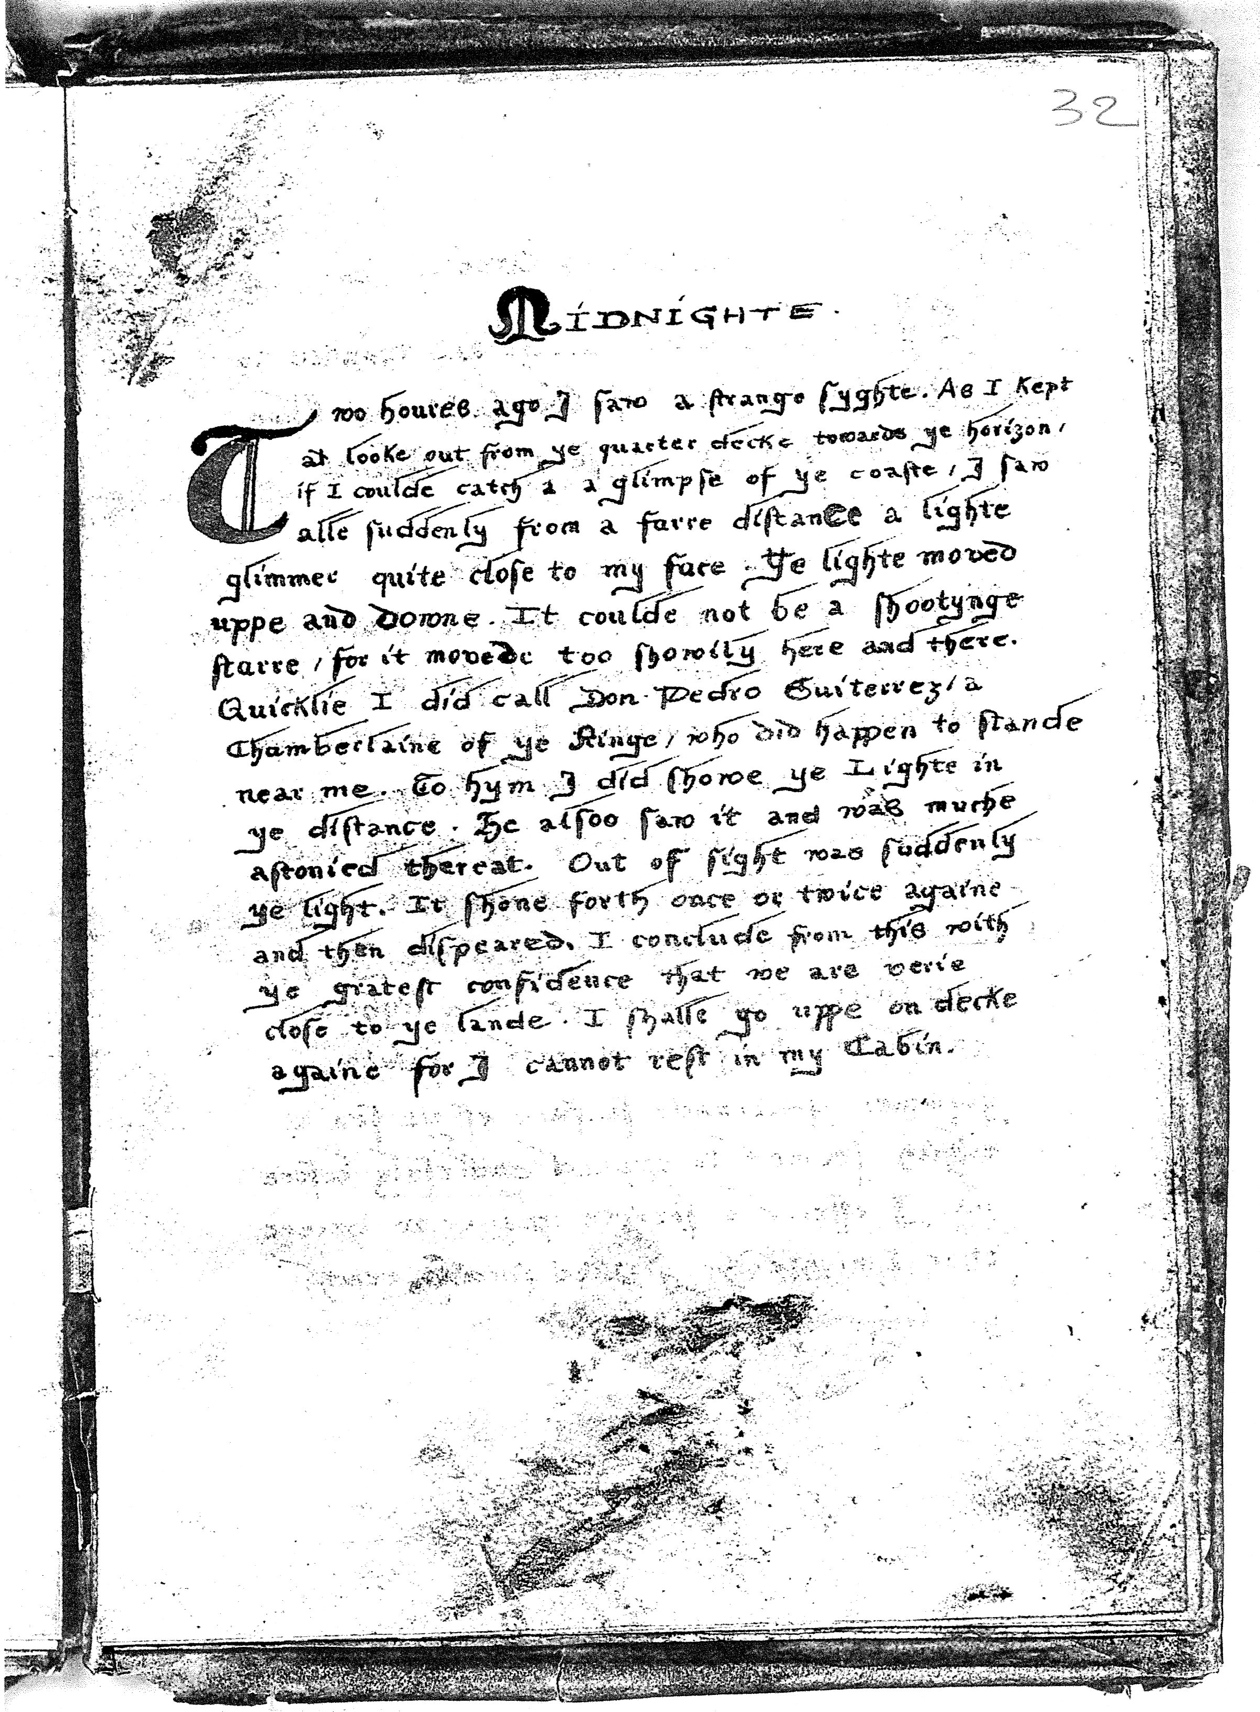 32
Midnighte.
Two houres ago I saw a strange syghte. As I kept
at looke out from ye quarter decke towards ye horizon,
if I coulde catch a a glimpse of ye coaste, I saw
alle suddenly from a farre distance a lighte
glimmer quite close to my face. Ye lighte moved
uppe and downe. It coulde not be a shootynge
starre, for it movede too showily here and there.
Quicklie I did call Don Pedro Guiterrez, a
Chamberlaine of ye Kinge, who did happen to stande
near me. To hym I did showe ye Lighte in
ye distance. He alsoo saw it and was muche
astonied thereat. Out of sight was suddenly
ye light. It shone forth once or twice againe
and then dispeared. I conclude from this with
ye gratest confidence that we are verie
close to ye lande. I shalle go uppe on decke
againe for I cannot rest in my Cabin.